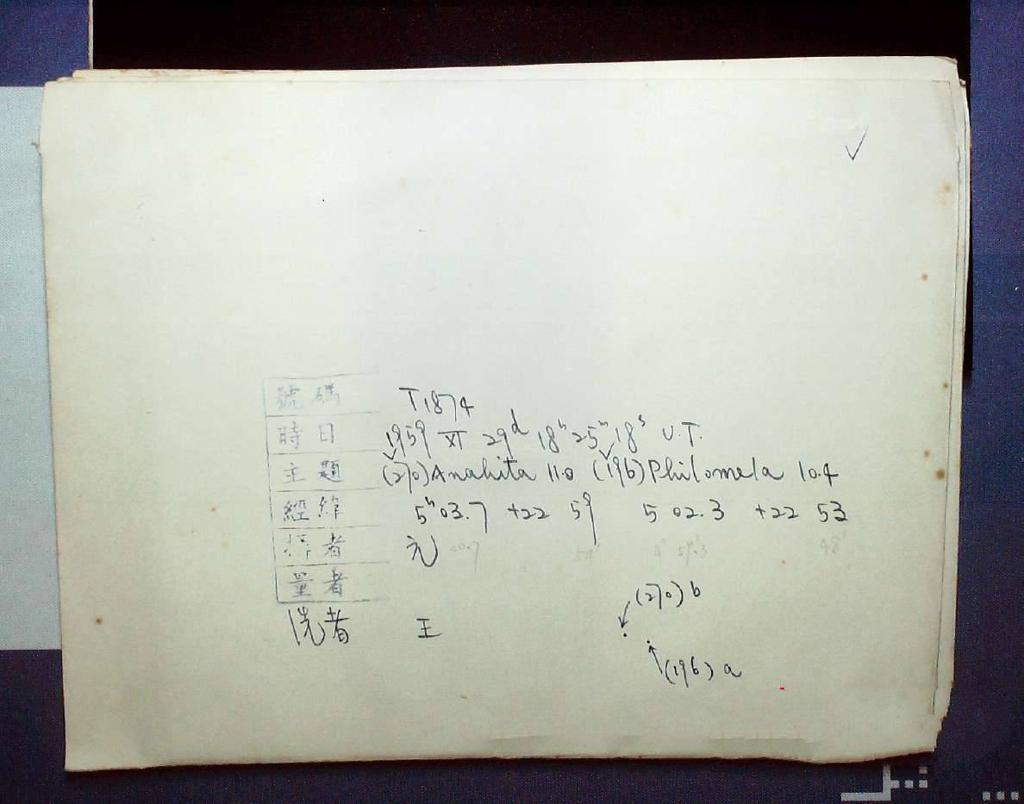 號碼 T1874
時日 1959 XI 29ᵈ 18ʰ 25ᵐ 18ˢ U.T.
主題 (270) Anahita 11.0 (196) Philomela 10.4
經緯 5ʰ 03.7 +22 59 5 02.3 +22 53
者 元
量者
洗者 王
(270) b
(196) a